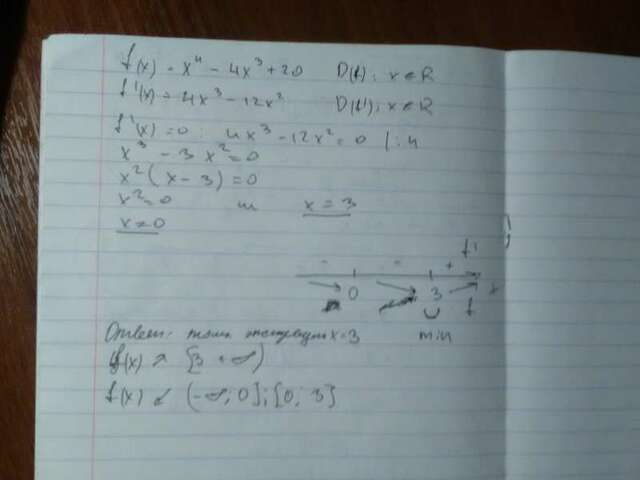 f(x) = x⁴ - 4x³ + 20 D(f): x ∈ R
f'(x) = 4x³ - 12x² D(f'): x ∈ R
f'(x) = 0 : 4x³ - 12x² = 0 | : 4
x³ - 3x² = 0
x²(x - 3) = 0
x² = 0 и x = 3
x = 0
f'
- - +
0 3 x
f
min
Ответ: точка экстремума x = 3
f(x) ↗ [3; +∞)
f(x) ↙ (-∞; 0]; [0; 3]